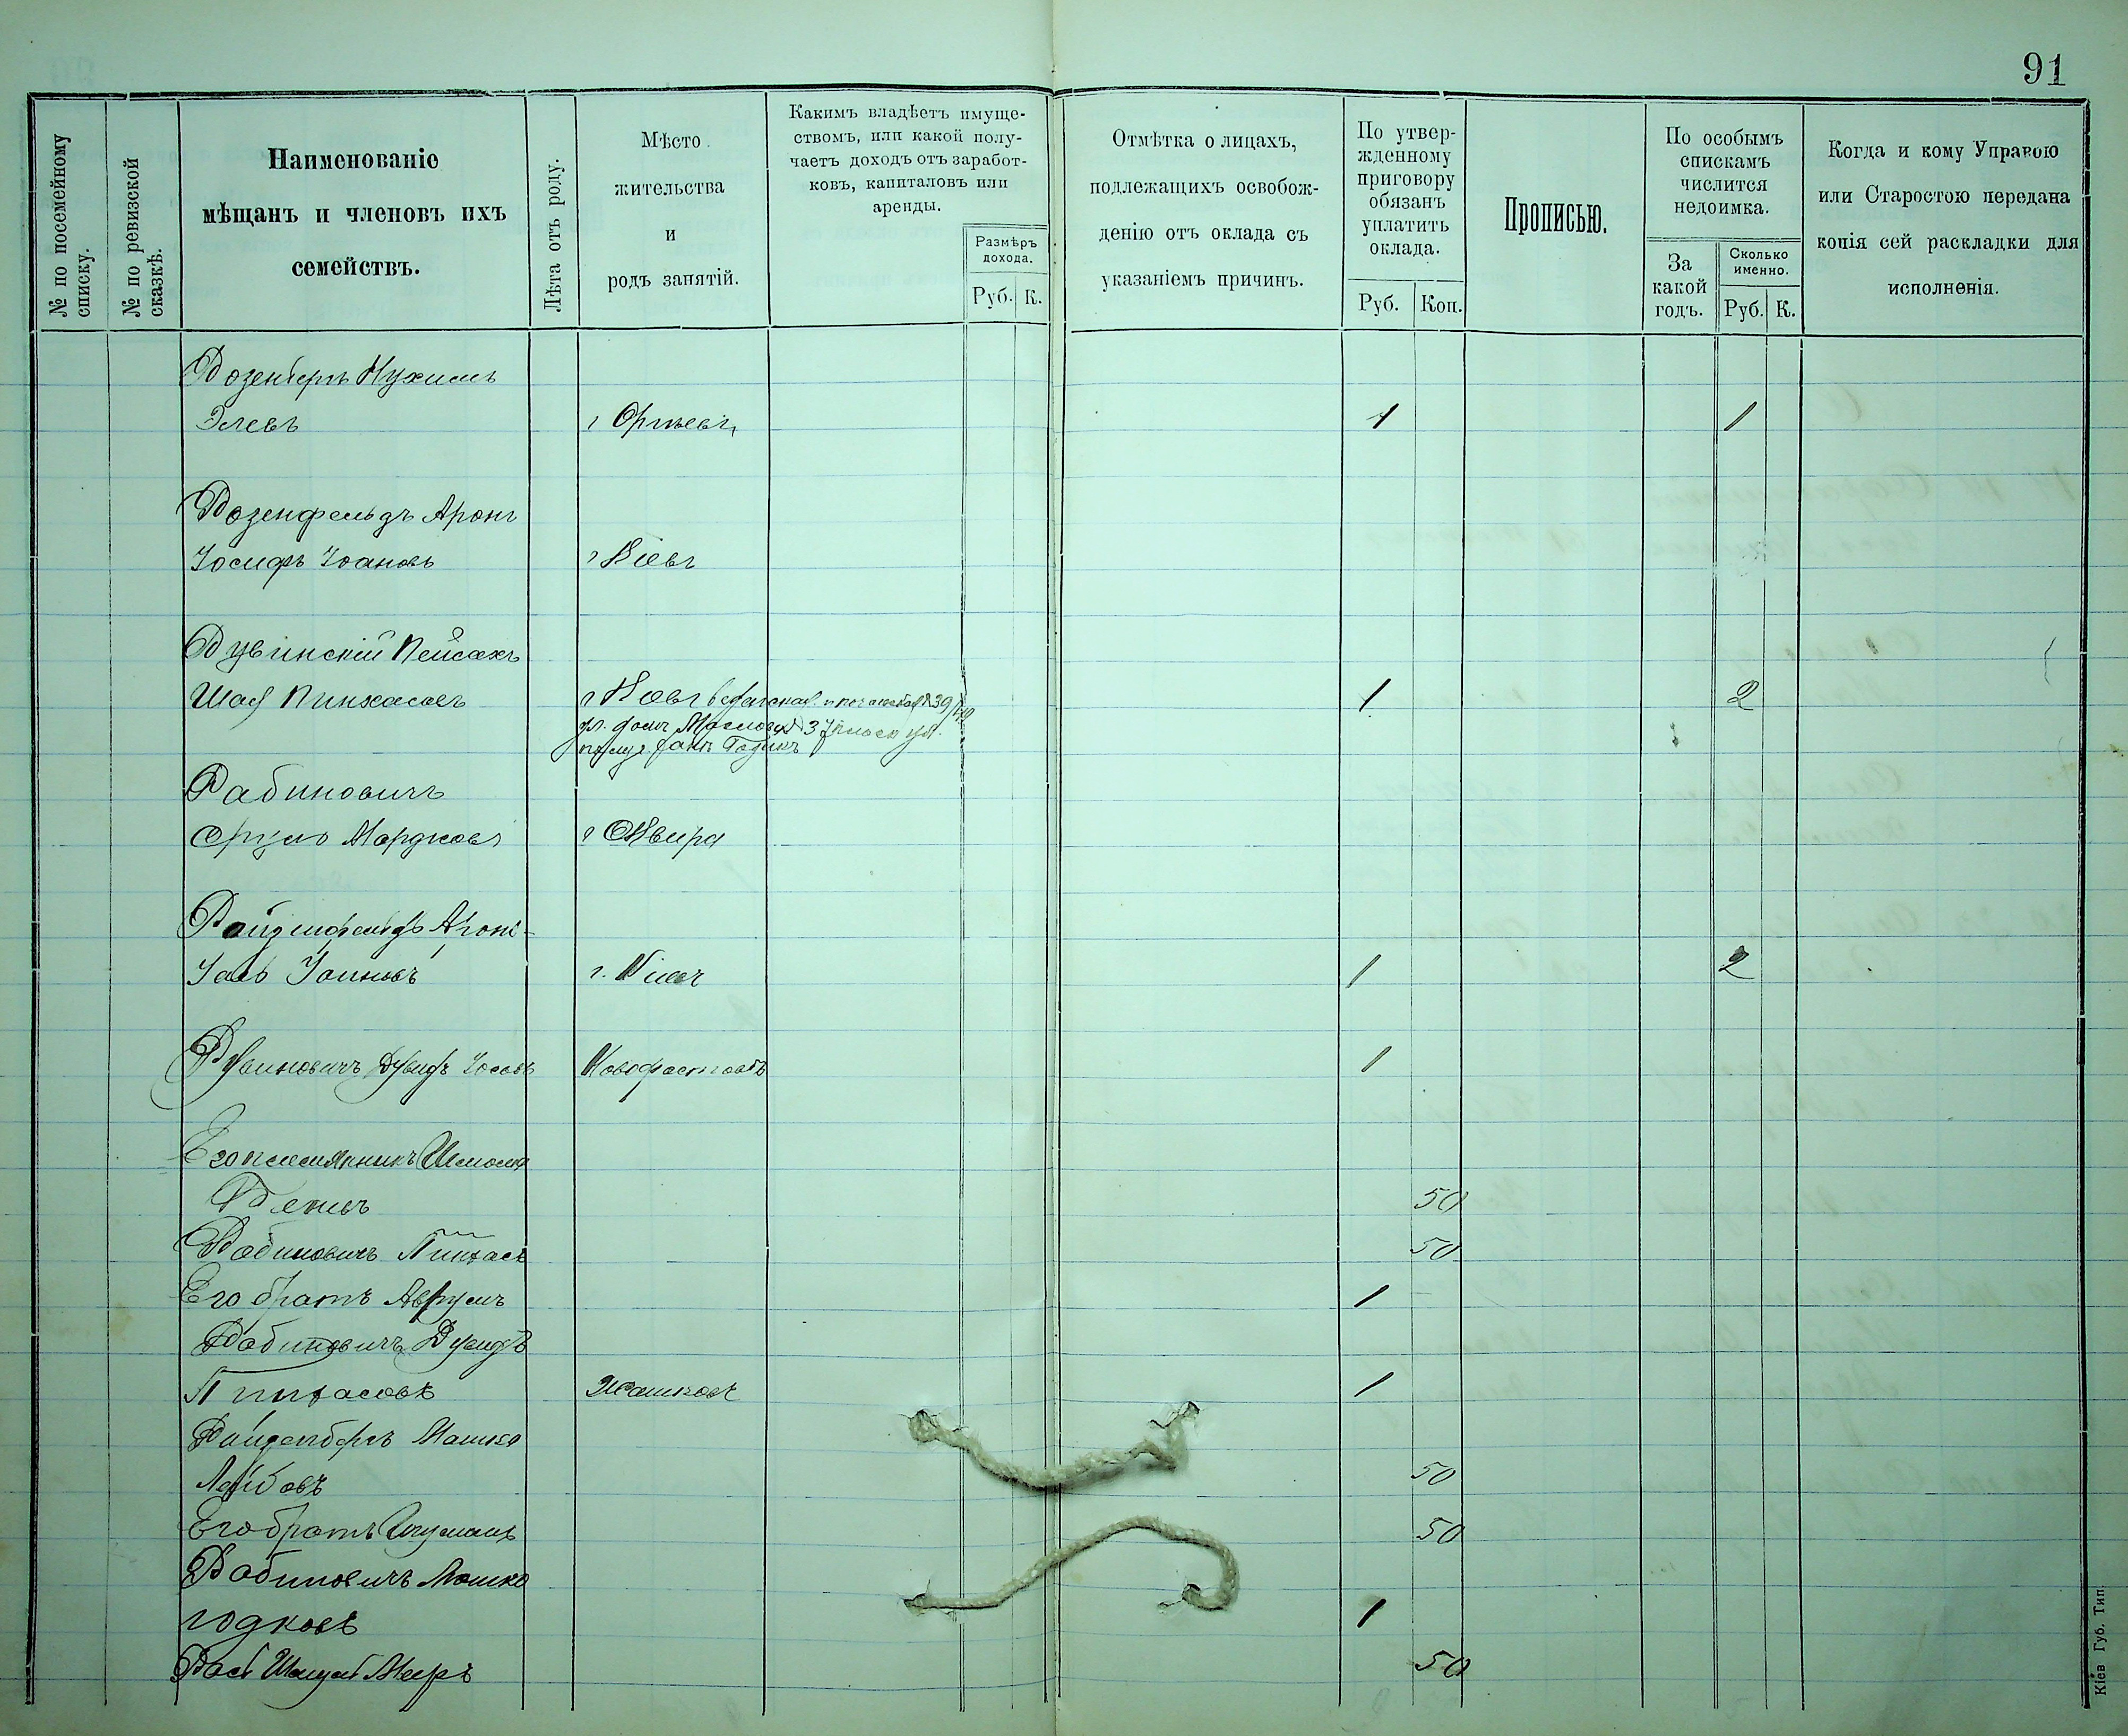 91
№ по посемейному
списку.
№ по ревизской
сказкѣ.
Наименованіе
мѣщанъ и членовъ ихъ
семействъ.
Лѣта отъ роду.
Мѣсто
жительства
и
родъ занятій.
Какимъ владѣетъ имуще-
ствомъ, или какой полу-
чаетъ доходъ отъ заработ-
ковъ, капиталовъ или
аренды.
Размѣръ
дохода.
Руб. К.
Отмѣтка о лицахъ,
подлежащихъ освобож-
денію отъ оклада съ
указаніемъ причинъ.
По утвер-
жденному
приговору
обязанъ
уплатить
оклада.
Руб. Коп.
Прописью.
По особымъ
спискамъ
числится
недоимка.
За
какой
годъ.
Сколько
именно.
Руб. К.
Когда и кому Управою
или Старостою передана
копія сей раскладки для
исполненія.
Розенбергъ Нухимъ
Элевъ 1 1
Розенфельдъ Аронъ
Іосифъ г Кіевъ
Рувинскій Пейсахъ
Шая Пинхасовъ г Кіевъ 1 2
Рабиновичъ
Сруль Мордковъ г Сквира
Аронъ-
г. Кіевъ 1 2
Рувиновичъ Дувидъ Іосевъ Новофастовъ 1
Его племянникъ Шмолка
50
Рабиновичъ Пинхасъ 50
Его братъ Аврумъ 1
Рабиновичъ Дувидъ
Пинхасовъ Жашковъ 1
Мошко
Лейбовъ 50
Его братъ 50
Рабиновичъ Мошко
1
Мееръ 50
Кіев Губ. Тип.